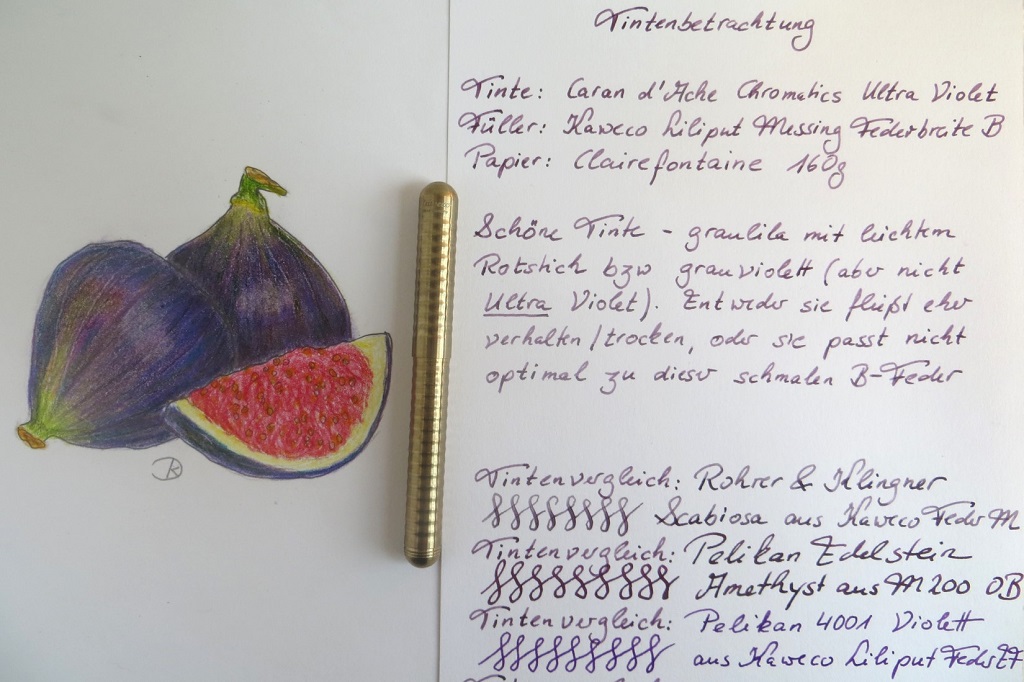 Tintenbetrachtung
Tinte: Caran d'Ache Chromatics Ultra Violet
Füller: Kaweco Liliput Messing Federbreite B
Papier: Clairefontaine 160g
Schöne Tinte - graulila mit leichtem
Rotstich bzw grauviolett (aber nicht
Ultra Violet). Entweder sie fließt eher
verhalten/trocken, oder sie passt nicht
optimal zu dieser schmalen B-Feder
Tintenvergleich: Rohrer & Klingner
Scabiosa aus Kaweco Feder M
Tintenvergleich: Pelikan Edelstein
Amethyst aus M200 OB
Tintenvergleich: Pelikan 4001 Violett
aus Kaweco Liliput Feder EF